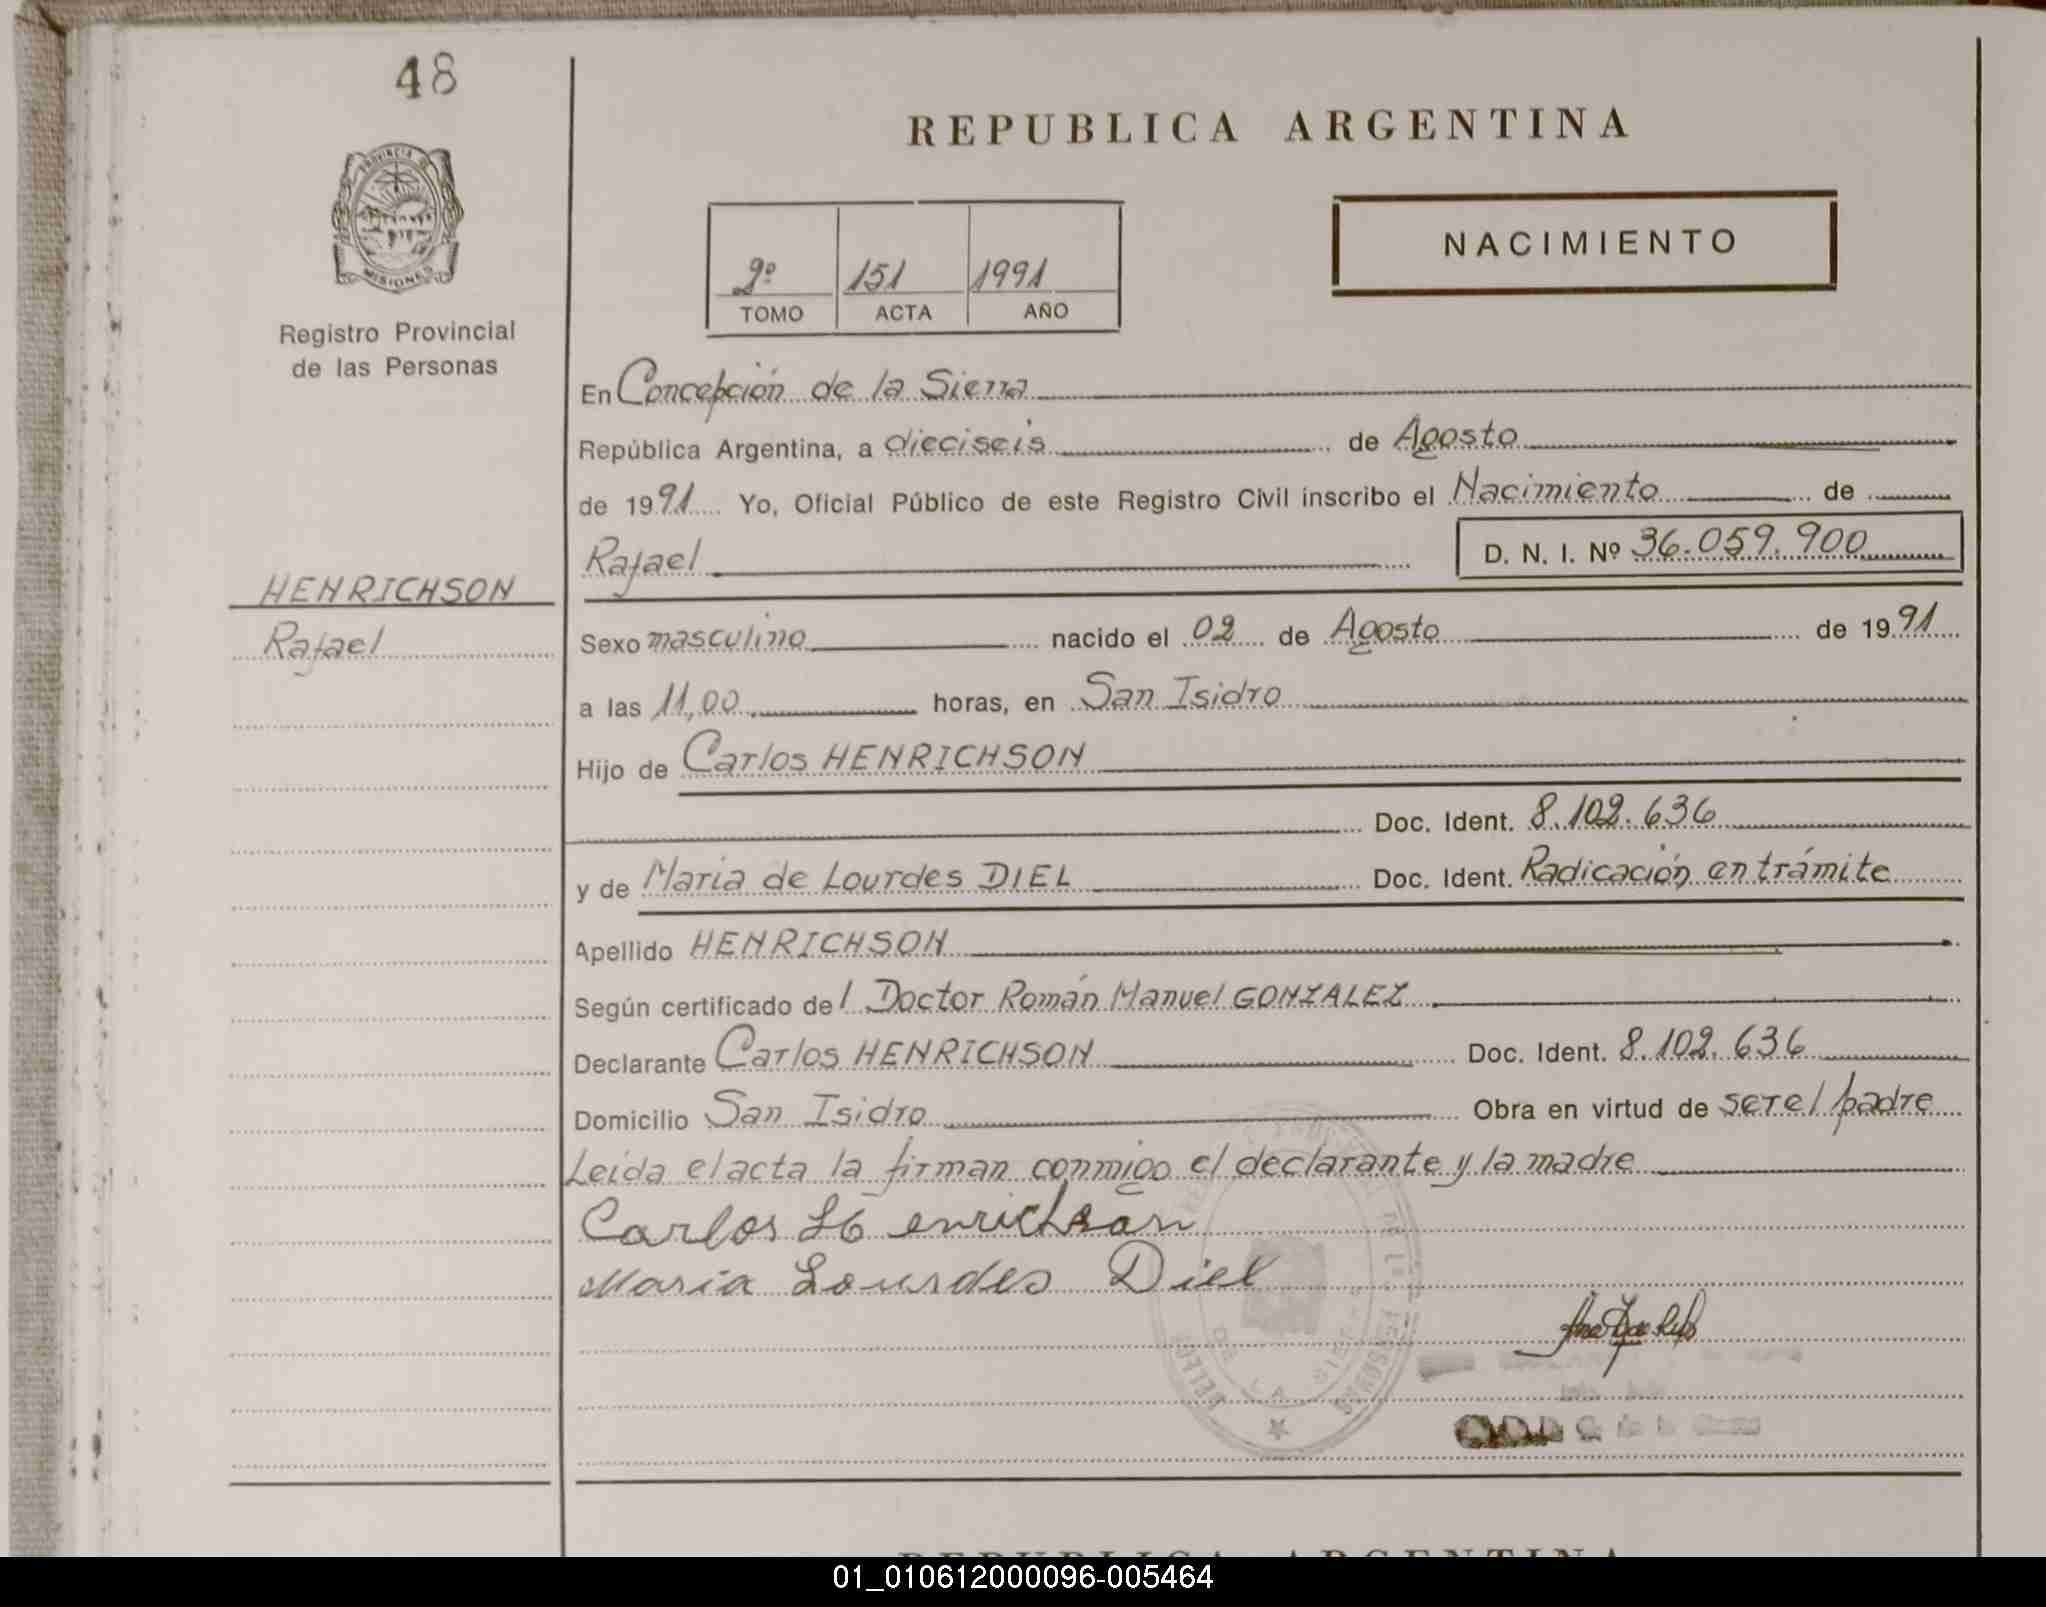 48
PROVINCIA DE
MISIONES
Registro Provincial
de las Personas
HENRICHSON
Rafael
REPUBLICA ARGENTINA
2º 151 1991
TOMO ACTA AÑO
NACIMIENTO
En Concepción de la Sierra
República Argentina, a dieciseis de Agosto
de 1991 Yo, Oficial Público de este Registro Civil inscribo el Nacimiento de
Rafael D. N. I. Nº 36.059.900
Sexo masculino nacido el 02 de Agosto de 1991
a las 11,00 horas, en San Isidro
Hijo de Carlos HENRICHSON
Doc. Ident. 8.102.636
y de Maria de Lourdes DIEL Doc. Ident. Radicación en trámite
Apellido HENRICHSON
Según certificado del Doctor Román Manuel GONZALEZ
Declarante Carlos HENRICHSON Doc. Ident. 8.102.636
Domicilio San Isidro Obra en virtud de ser el padre
Leída el acta la firman conmigo el declarante y la madre
Carlos Henrichson
Maria Lourdes Diel
REPUBLICA ARGENTINA
01_010612000096-005464